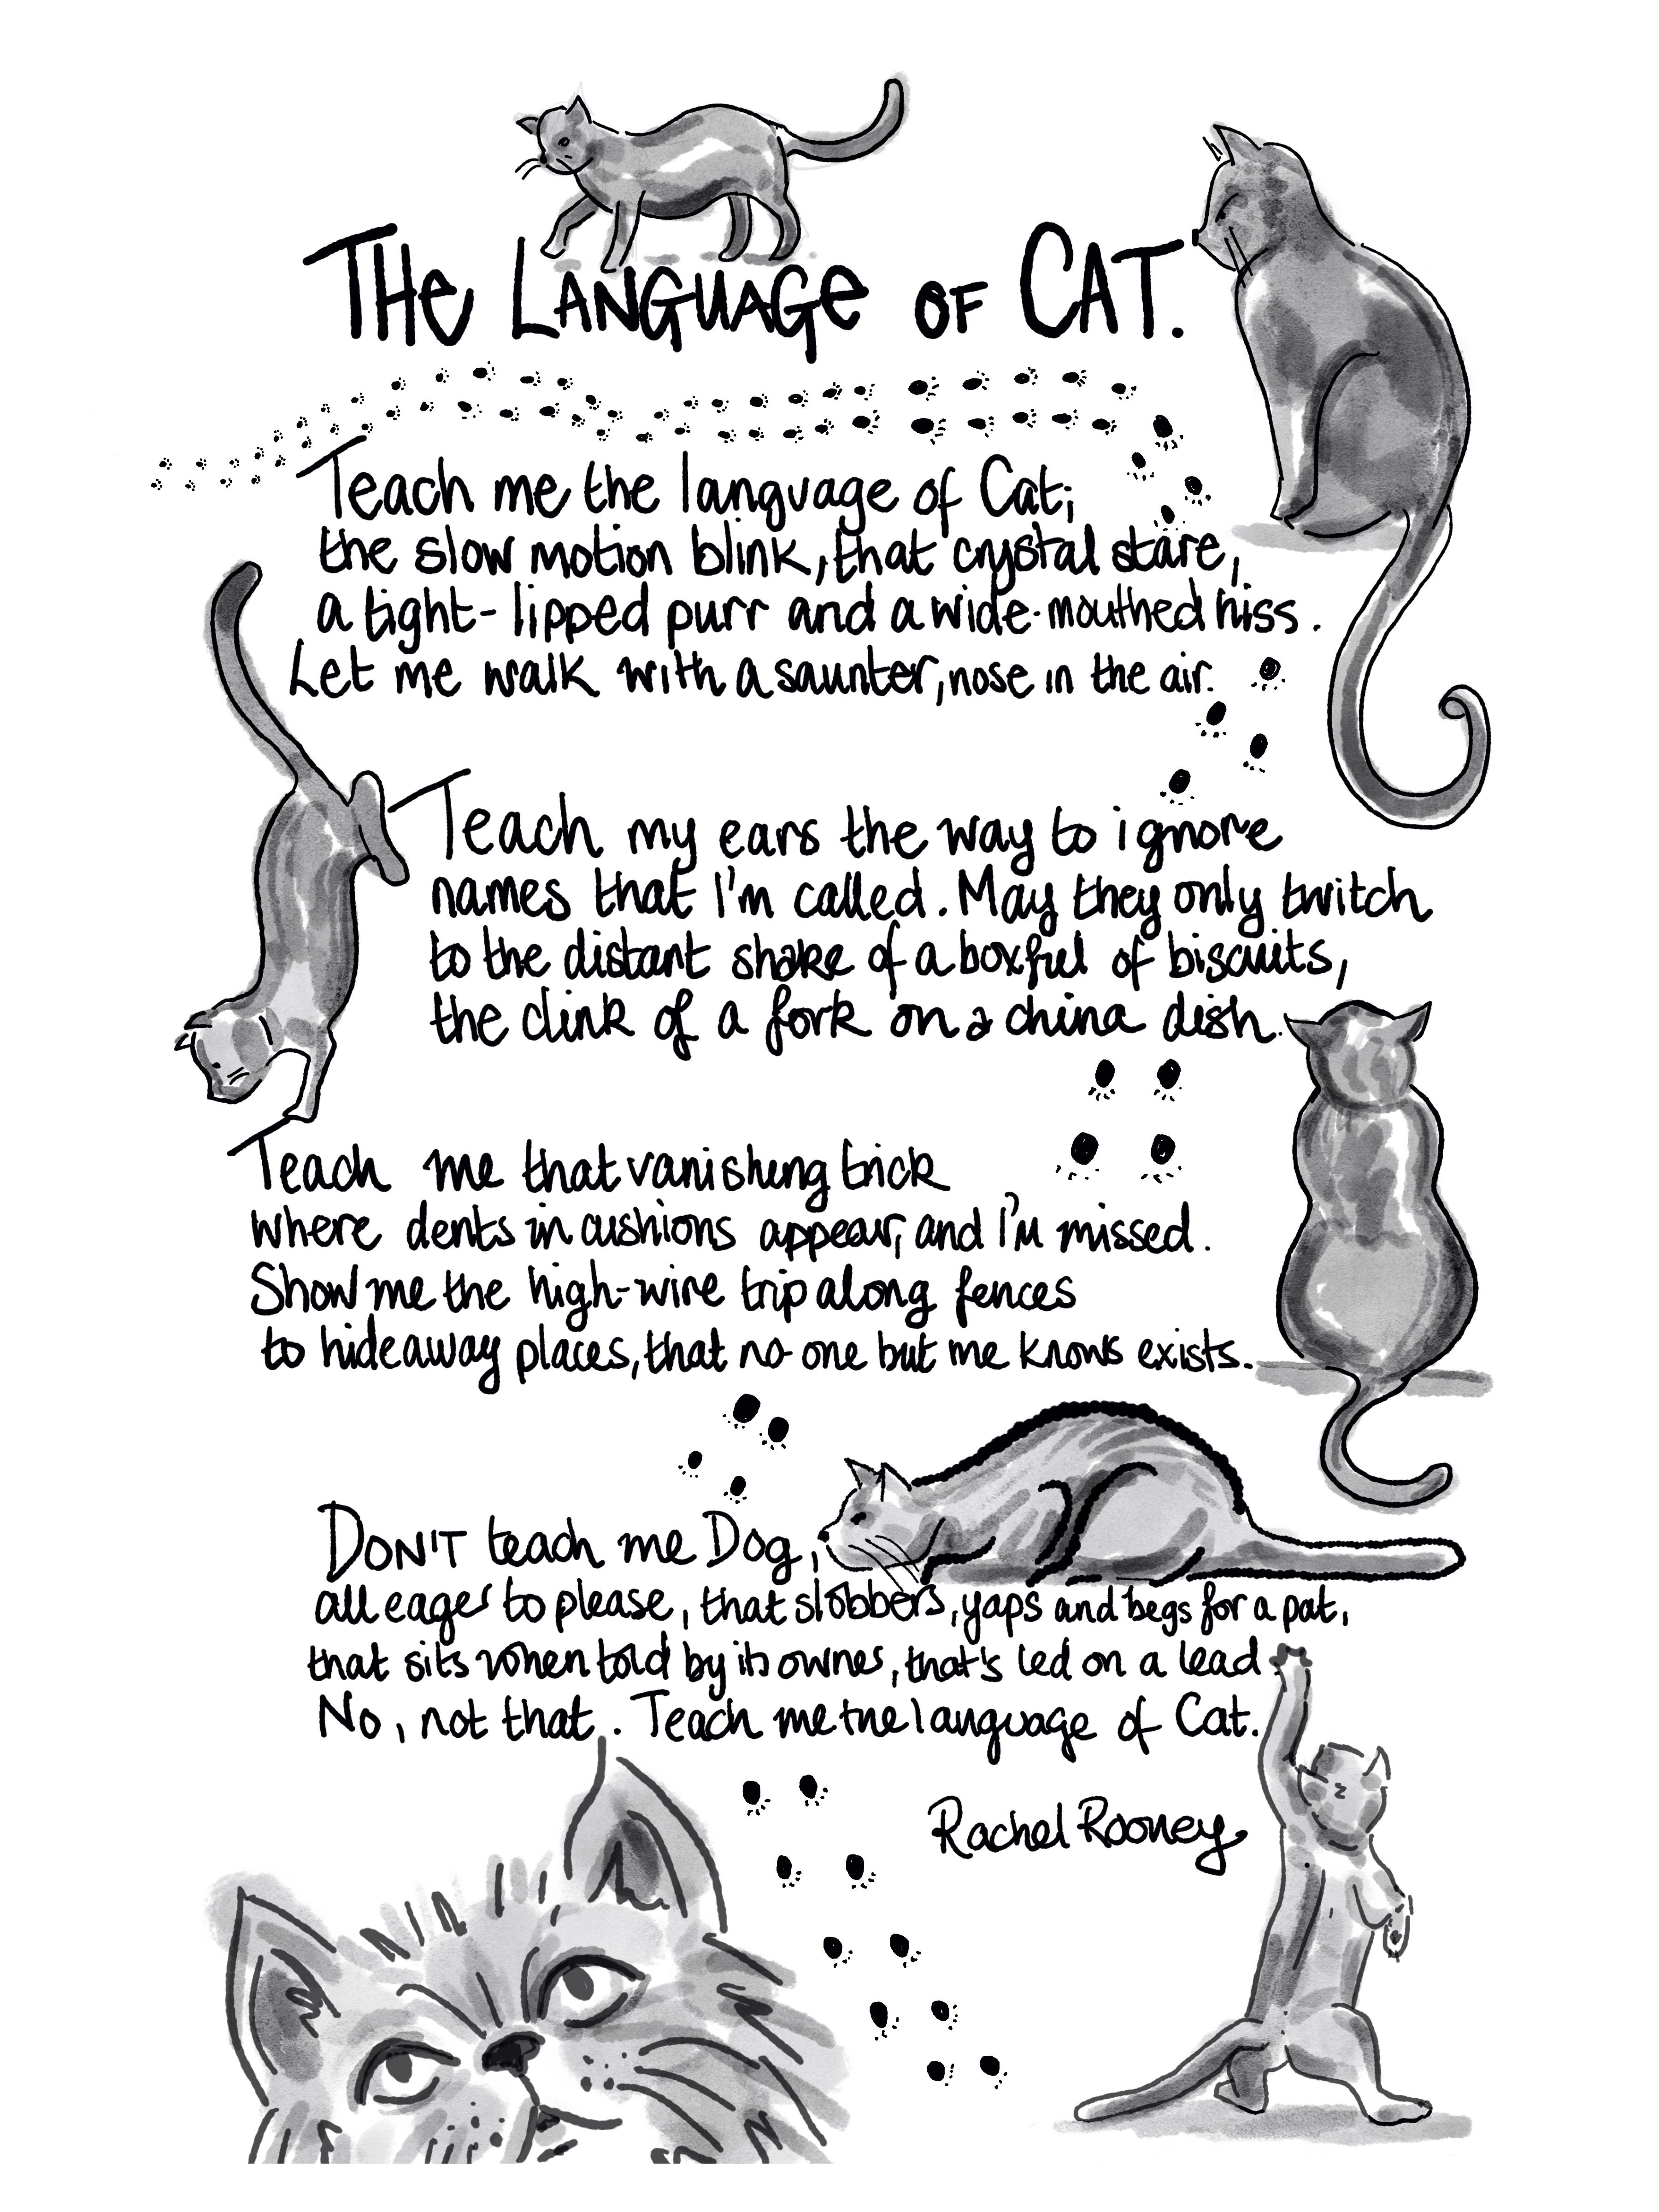 THE LANGUAGE OF CAT.
Teach me the language of Cat;
the slow motion blink, that crystal stare,
a tight-lipped purr and a wide-mouthed hiss.
Let me walk with a saunter, nose in the air.
Teach my ears the way to ignore
names that I'm called. May they only twitch
to the distant shake of a boxful of biscuits,
the clink of a fork on a china dish.
Teach me that vanishing trick
where dents in cushions appear, and I'm missed.
Show me the high-wire trip along fences
to hideaway places, that no-one but me knows exists.
DON'T teach me Dog,
all eager to please, that slobbers, yaps and begs for a pat,
that sits when told by its owner, that's led on a lead.
No, not that. Teach me the language of Cat.
Rachel Rooney